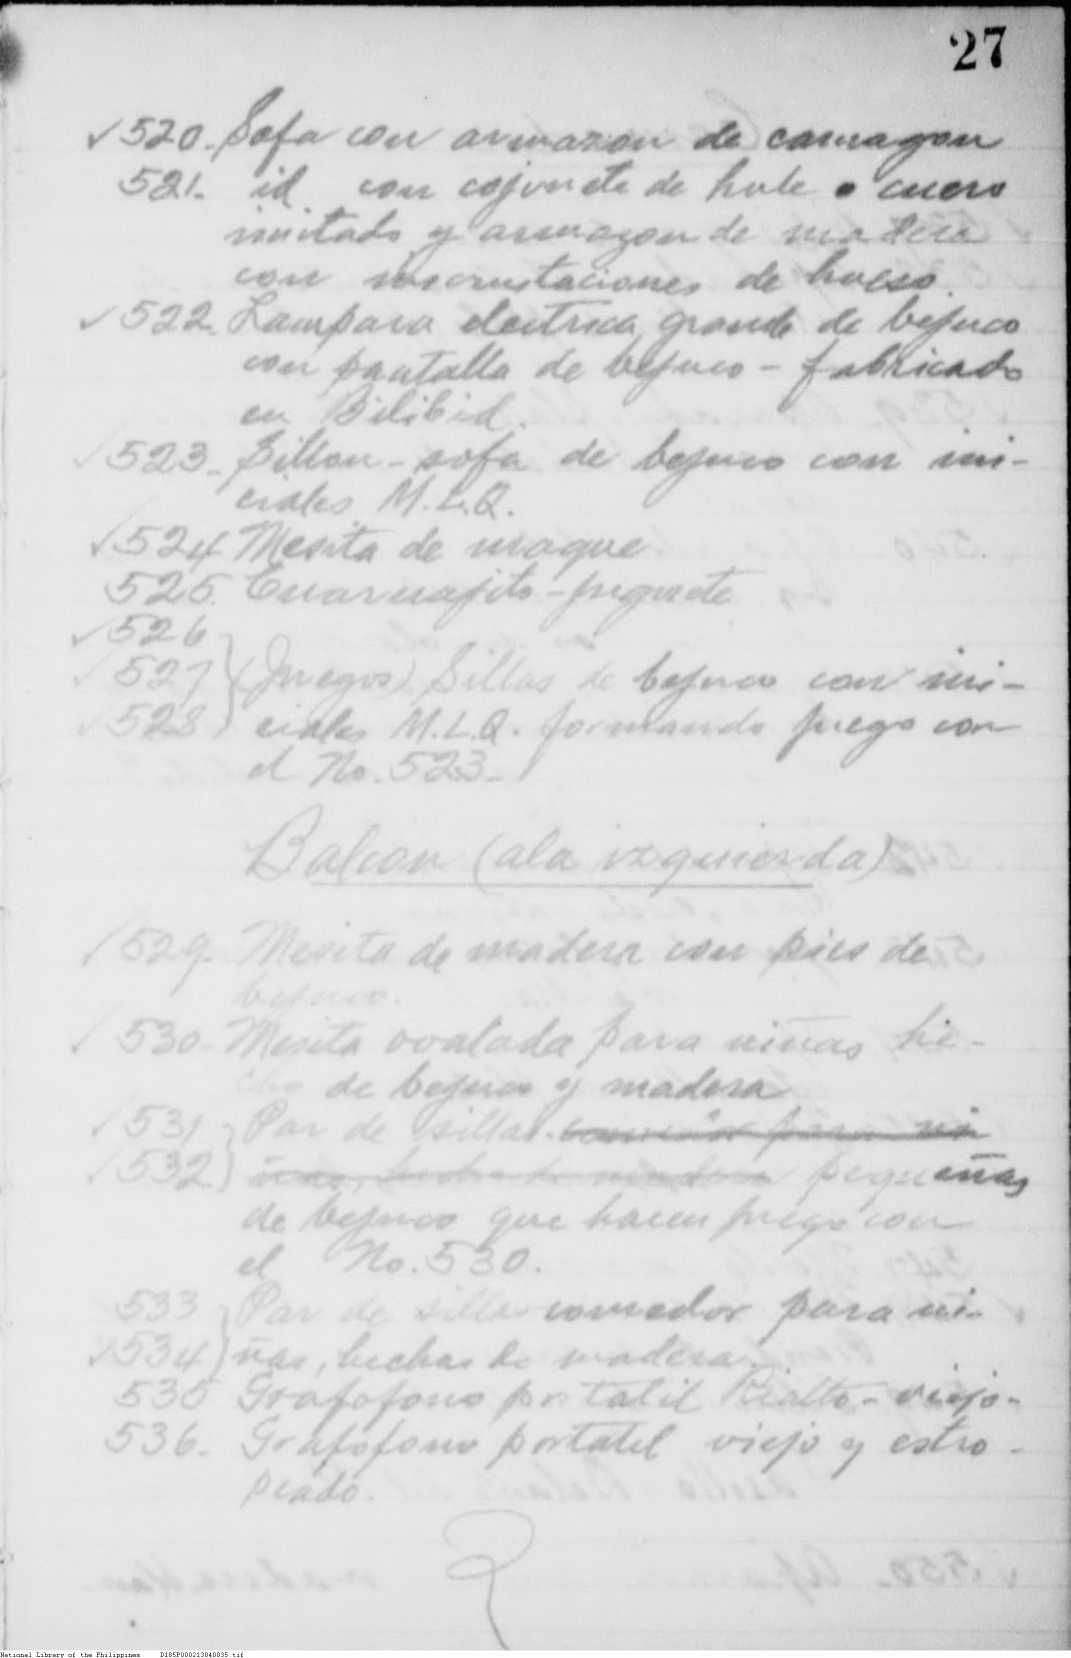 27
✓520. Sofa con armazon de camagon
521. id. con cojonete de hule o cuero
imitado y armazon de madera
con incrustaciones de hueso.
✓522. Lampara electrica grande de bejuco
con pantalla de bejuco - fabricado
en Bilibid.
✓523. Sillon - sofa de bejuco con ini-
ciales M.L.Q.
✓524 Mesita de maque
525. Cuarnajito - juguete
✓526
✓527 (Juegos) Sillas de bejuco con ini-
✓528) ciales M.L.Q. formando juego con
el No. 523-
Balcon (ala izquierda)
✓529. Mesita de madera con pies de
bejuco.
✓530. Mesita ovalada para niñas he-
cha de bejuco y madera
✓531 Par de sillas comedor para ni
✓532) ñas, hechas de madera pequeñas
de bejuco que hacen juego con
el No. 530.
533 Par de silla comedor para ni-
✓534) ñas, hechas de madera.
535 Grafofono portatil Rialto - viejo -
536. Grafofono portatil viejo y estro-
peado.
National Library of the Philippines D185P000213040035.tif